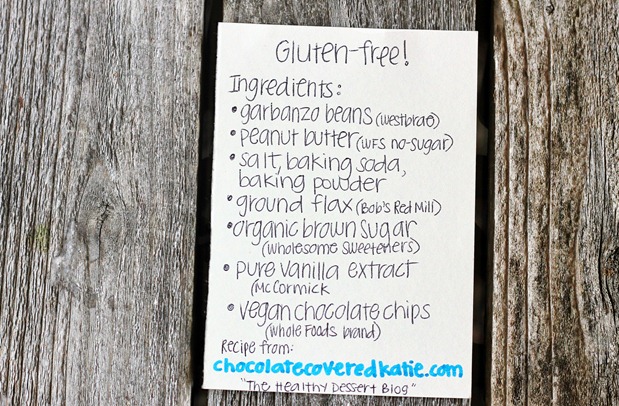 Gluten-free!
Ingredients:
• garbanzo beans (westbrae)
• peanut butter (WFS no-sugar)
• salt, baking soda,
baking powder
• ground flax (Bob's Red Mill)
• organic brown sugar
(wholesome sweeteners)
• pure vanilla extract
(McCormick
• vegan chocolate chips
(whole Foods brand)
Recipe from:
chocolatecoveredkatie.com
"The Healthy Dessert Blog"